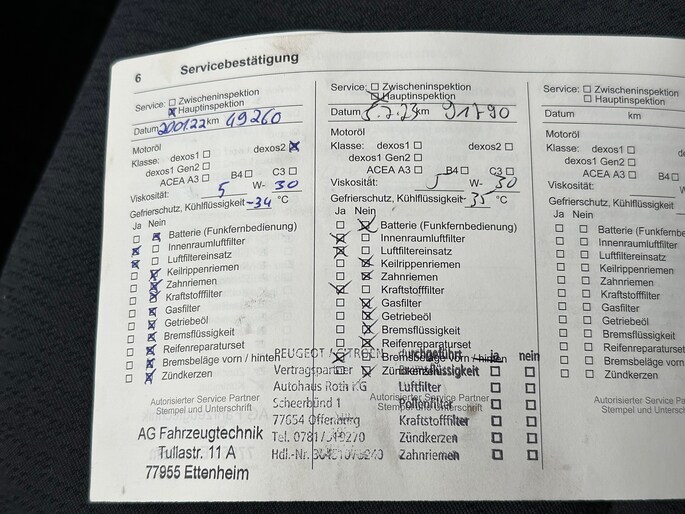 6 Servicebestätigung
Service: Zwischeninspektion
Hauptinspektion
Datum 20.01.22 km 49260
Motoröl
Klasse: dexos1 dexos2
dexos1 Gen2
ACEA A3 B4 C3
Viskosität: 5 W- 30
Gefrierschutz, Kühlflüssigkeit -34 °C
Ja Nein
Batterie (Funkfernbedienung)
Innenraumluftfilter
Luftfiltereinsatz
Keilrippenriemen
Zahnriemen
Kraftstofffilter
Gasfilter
Getriebeöl
Bremsflüssigkeit
Reifenreparaturset
Bremsbeläge vorn / hinten
Zündkerzen
Autorisierter Service Partner
Stempel und Unterschrift
AG Fahrzeugtechnik
Tullastr. 11 A
77955 Ettenheim
Service: Zwischeninspektion
Hauptinspektion
Datum 5.2.23 km 91790
Motoröl
Klasse: dexos1 dexos2
dexos1 Gen2
ACEA A3 B4 C3
Viskosität: 5 W- 30
Gefrierschutz, Kühlflüssigkeit -35 °C
Ja Nein
Batterie (Funkfernbedienung)
Innenraumluftfilter
Luftfiltereinsatz
Keilrippenriemen
Zahnriemen
Kraftstofffilter
Gasfilter
Getriebeöl
Bremsflüssigkeit
Reifenreparaturset
Bremsbeläge vorn / hinten
Zündkerzen
Autorisierter Service Partner
Stempel und Unterschrift
PEUGEOT / CITROEN
Vertragspartner
Autohaus Roth KG
Scheerbünd 1
77654 Offenburg
Tel. 0781
Hdl.-Nr.
durchgeführt ja nein
Bremsflüssigkeit
Luftfilter
Pollenfilter
Kraftstofffilter
Zündkerzen
Zahnriemen
Service: Zwischeninspektion
Hauptinspektion
Datum km
Motoröl
Klasse: dexos1
dexos1 Gen2
ACEA A3
Viskosität:
Gefrierschutz, Kühlflüssigkeit
Ja Nein
Batterie (Funkfernbe
Innenraumluftfilter
Luftfiltereinsatz
Keilrippenriemen
Zahnriemen
Kraftstofffilter
Gasfilter
Getriebeöl
Bremsflüssigkeit
Reifenreparaturset
Bremsbeläge vorn
Zündkerzen
Autorisierter Servic
Stempel und Un